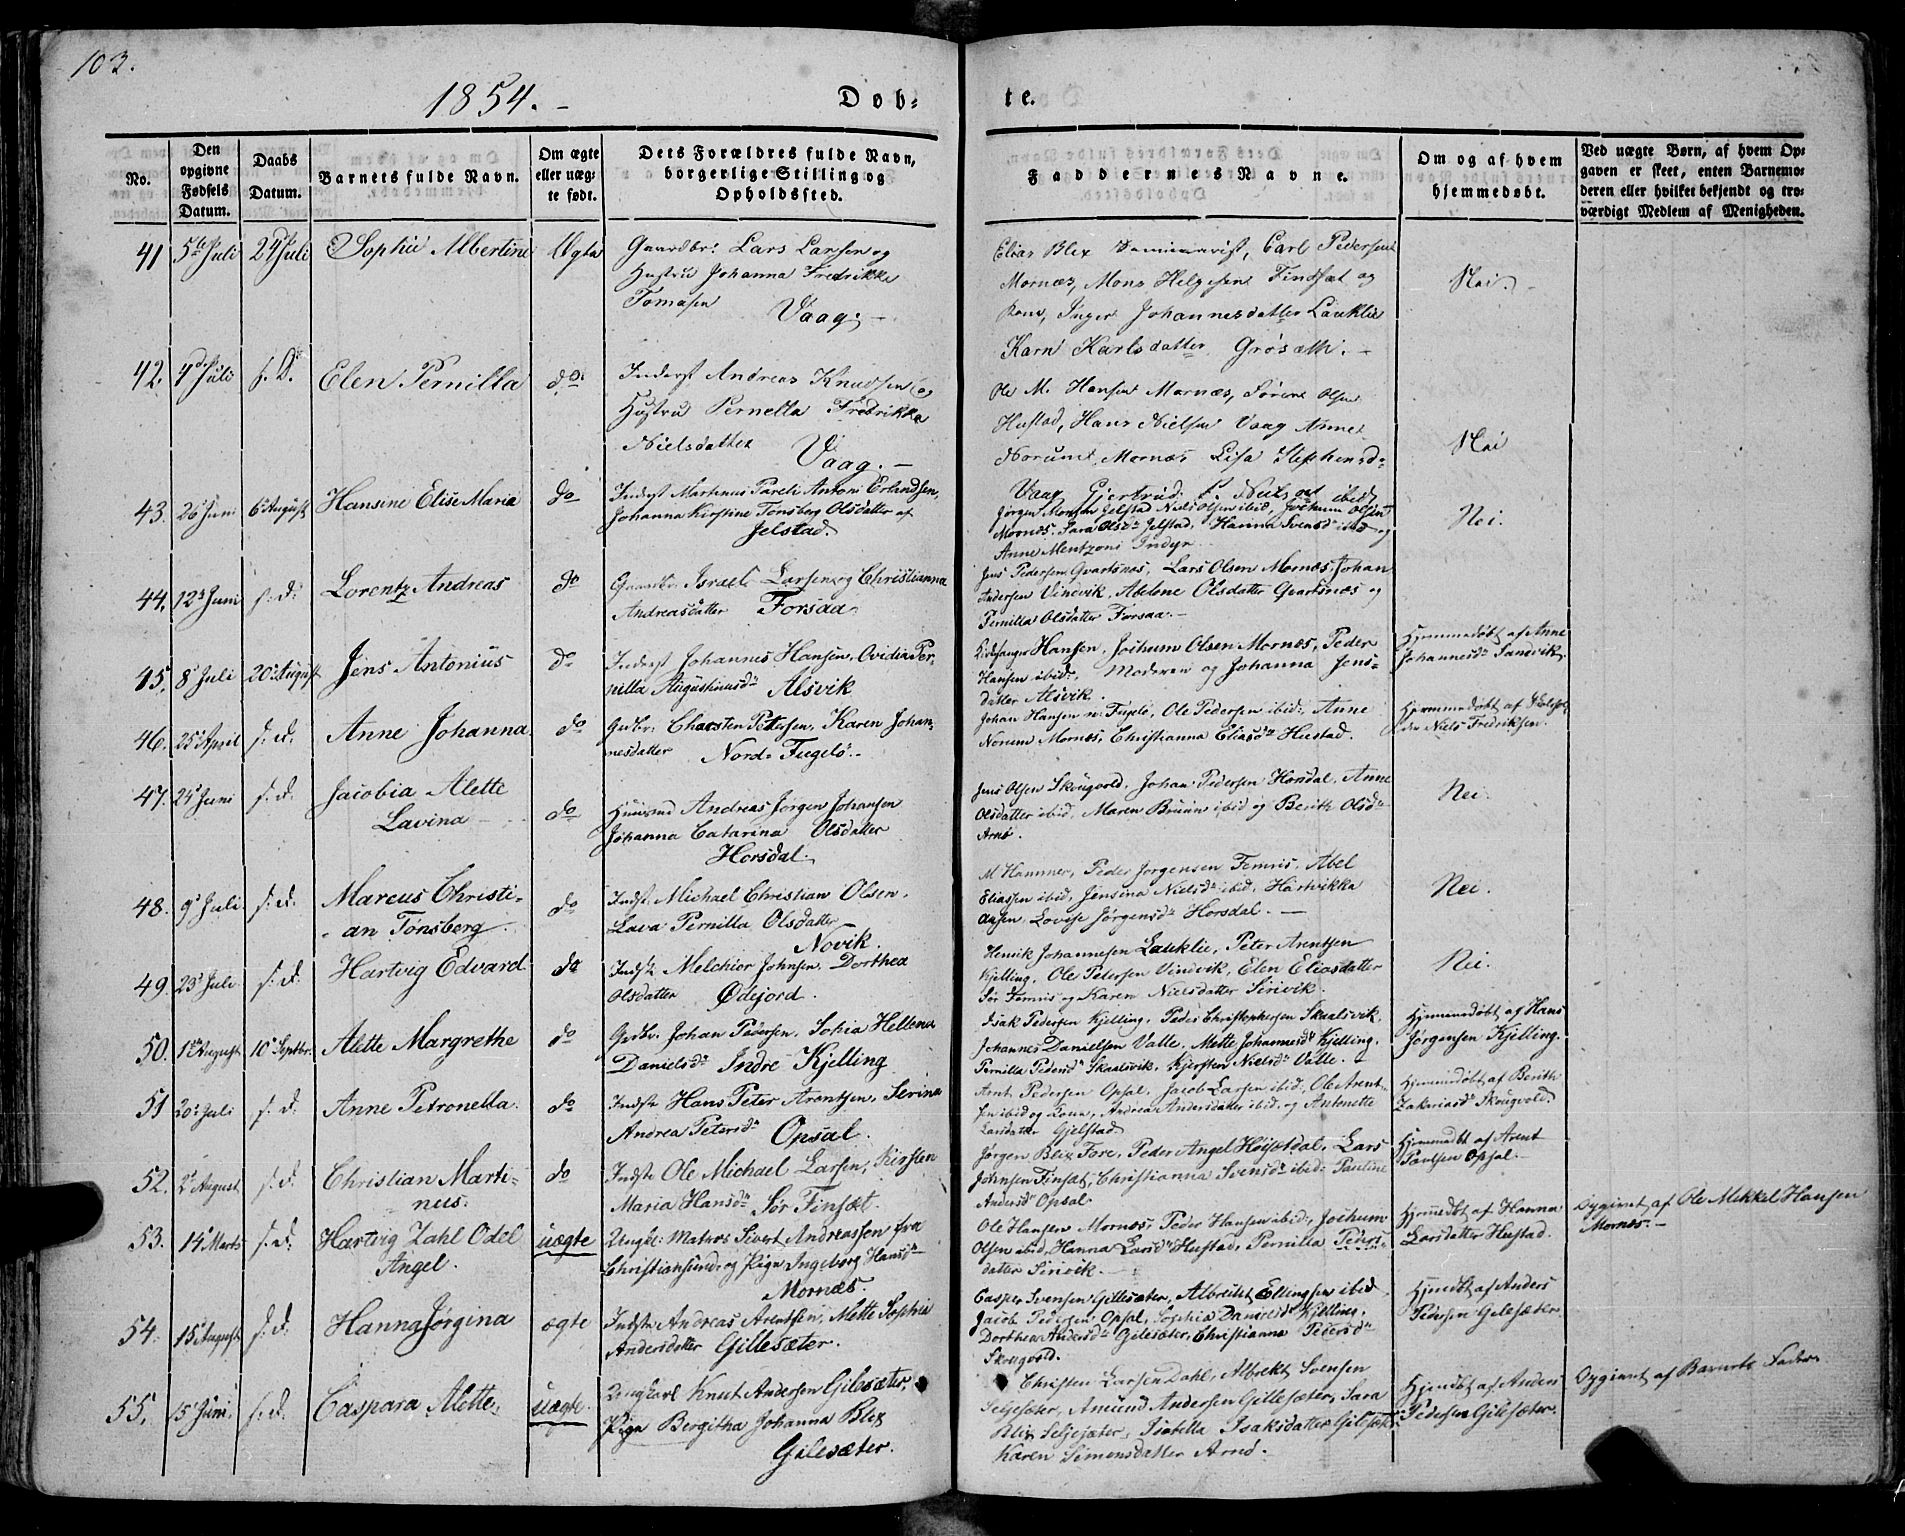 103.
1854.-
Dob-
te.
No.
Den opgivne Fødsels Datum.
Daabs Datum.
Barnets fulde Navn.
Om ægte eller uægte født.
Dets Forældres fulde Navn, borgerlige Stilling og Opholdssted.
Faddernes Navne.
Om og af hvem hjemmedøbt.
Ved uægte Børn, af hvem Opgaven er skeet, enten Barnemoderen eller hvilket bekjendt og troværdigt Medlem af Menigheden.
41 5te Juli Juli Sophie Albertine Ægte
Gaardbr: Lars Larsen og
Hustru Johanna Fredrikke
Tomasen Vaag.-
Elias Blix Seminarist, Carl Pedersen
Mornæs, Mons Helgesen Finsæt og
Kone, Inger Johannesdatter Lauklie
Karn Karlsdatter Grøsæth.-
Nei.-
42. Juli s. D. Elen Pernilla do.
Inderst Andreas Knudsen og
Hustru Pernella Fredrikka
Nielsdatter Vaag.-
Ole M. Hansen Mornæs, Sørene Olsen
Hustad, Hans Nielsen Vaag Anne
Norum Mornæs Lisa Stephensd.
Vaag Gjertrud Niels ibid.
Nei
43. 26 Juni 6 August Hansine Elise Maria do
Inderst Martinus Pareli Antoni Erlandsen,
Johanna Kirstine Tønsberg Olsdatter af
Jelstad.
Jørgen Monsen Jelstad Niels Olsen ibid, Jochum Olsen
Mornæs, Sara Olsdr Jelstad, Hanna Svensd ibid og
Anne Mentzoni Indyr
Nei.
44. 12 Juni s. d. Lorentz Andreas do
Gaardbr. Israel Larsen og Christianna
Andreasdatter Forsaa.
Jens Pedersen Qvartsnæs, Lars Olsen Mornæs, Johan
Andersen Vindvik, Abelone Olsdatter Qvartsnæs og
Pernilla Olsdatter Forsaa.-
45. 8 Juli 20 August Jens Antonius do
Inderst Johannes Hansen, Ovidia Per-
nilla Augustinusdr Alsvik
Kirkesanger Hansen, Jochum Olsen Mornæs, Peder
Hansen ibid, Moderen og Johanna Jens-
datter Alsvik.
Hjemmedøbt af Anne
Johannesdr Sandvik.
46. 25 April s. d. Anne Johanna do
Grbr. Charsten Petersen, Karen Johan-
nesdatter Nord-Fugelø.-
Johan Hansen n: Fugelø, Ole Pedersen ibid, Anne
Norum Mornæs, Christianna Eliasdr Hustad.
Hjemmedøbt af
Niels Fredriksen.
47. 24 Juni s. d. Jacobia Alette
Lavina do
Huusmd Andreas Jørgen Johansen
Johanna Catarina Olsdatter
Horsdal.
Jens Olsen Skougvold, Johan Pedersen Horsdal, Anne
Olsdatter ibid, Maren Bruun ibid og Berith Olsdr
Arnø.
Nei.
48. 9 Juli s. d. Marcus Christi-
an Tønsberg. do
Indst. Michael Christian Olsen,
Lava Pernilla Olsdatter
Novik.
M. Hammer, Peder Jørgensen Femris, Abel
Eliassen ibid, Jensina Nielsdr ibid, Hartvikka
Lovise Jørgensdr Horsdal.-
Nei.
49. 23 Juli s. d. Hartvig Edvard do
Indst. Melchior Johnsen, Dorthea
Olsdatter Ødejord.
Henrik Johannesen Lauklie, Peter Arentsen
Kjelling, Ole Pedersen Vindvik, Elen Eliasdatter
Sør Femris og Karen Nielsdatter Sirivik.
Nei.
50. 1 August 10 Septbr. Alette Margrethe do
Grbr. Johan Pedersen, Sohia Hellena
Danielsdr Indre Kjelling
Isak Pedersen Kjelling, Peder Christophersen Skaalsvik,
Johannes Danielsen Valle, Mette Johannesdr Kjelling,
Pernilla Pedersdr Skaalsvik, Kjersten Nielsdr Valle.
Hjemmedøbt af Hans
Jørgensen Kjelling.
51 20 Juli s. d. Anne Petronella. do
Indst. Hans Peter Arentsen, Serina
Andrea Petersdr Opsal.
Arnt Pedersen Opsal, Jacob Larsen ibid, Ole Arent-
sen ibid og Kone, Andrea Andersdatter ibid og Antonette
Larsdatter Gjelstad.
Hjemmedøbt af Berith
Zakariasdr Skougvold.
52. 2 August s. d. Christian Marti-
nus. do
Indst. Ole Michael Larsen, Kirsten
Maria Hansdr Sør Finsæt.
Jørgen Blix Fore, Peder Angel Høistdal, Lars
Johnsen Finsæt, Christianna Svensdr ibid, Pauline
Andersdr Opsal.
Hjemmedbt af Arent
Paulsen Opsal.-
53. 14 Marts s. d. Hartvig Zahl Odel
Angel. uægte
Ungk: Matros Sivert Andreassen fra
Christiansund og Pige Ingeborg Hansdr
Mornæs.
Ole Hansen Mornæs, Peder Hansen ibid, Jochum
Olsen ibid, Hanna Larsdr Hustad, Pernilla Peders-
datter Sirivik.-
Hjemmedbt af Hanna
Larsdatter Hustad.
Opgivet af Ole Mekkel Hansen
Mornæs.-
54. 15 August s. d. Hanna Jørgina ægte
Indst. Andreas Arentsen, Mette Sophia
Andersdatter Gillesæter.
Casper Svensen Gillesæter, Albreckt Ellingsen ibid,
Jacob Pedersen Opsal, Sophia Danielsdr Kjelling,
Dorthea Andersdr Gilesæter, Christianna Pedersdr
Skougvold.
Hjmdbt af Anders
Pedersen Gilesæter.
55. 5 Juni s. d. Caspara Alette. uægte.
Ungkarl Knut Andersen Gilesæter,
Pige Bergitha Johanna Blix
Gilesæter.
Christen Larsen Dahl, Albrekt Svensen
Seljesæter, Amund Andersen Gillesæter, Sara
Blix Seljesæter, Isabella Isaksdatter Gilesæter
Karen Simonsdatter Arnø.
Hjmdbt af Anders
Pedersen Gilesæter.
Opgivet af Barnets Fader.